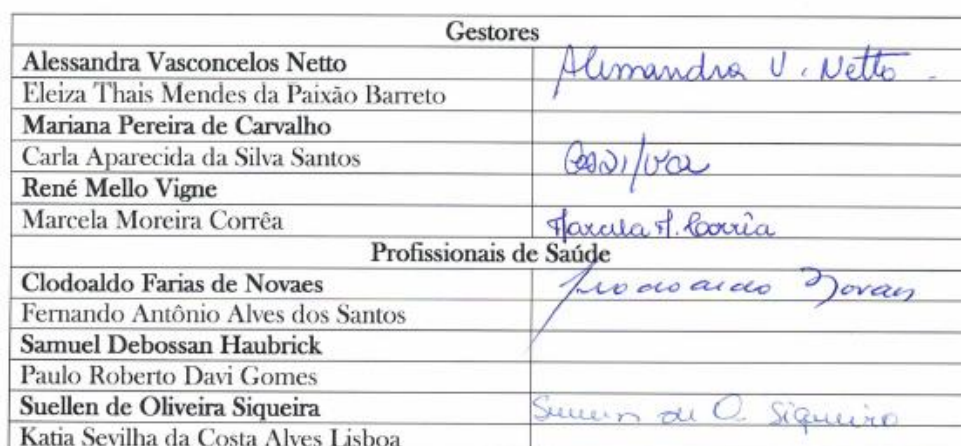 Gestores
Alessandra Vasconcelos Netto Alessandra V. Netto
Eleiza Thais Mendes da Paixão Barreto
Mariana Pereira de Carvalho
Carla Aparecida da Silva Santos
René Mello Vigne
Marcela Moreira Corrêa Marcela M. Corrêa
Profissionais de Saúde
Clodoaldo Farias de Novaes Clodoaldo Novaes
Fernando Antônio Alves dos Santos
Samuel Debossan Haubrick
Paulo Roberto Davi Gomes
Suellen de Oliveira Siqueira Suellen de O. Siqueira
Katia Sevilha da Costa Alves Lisboa